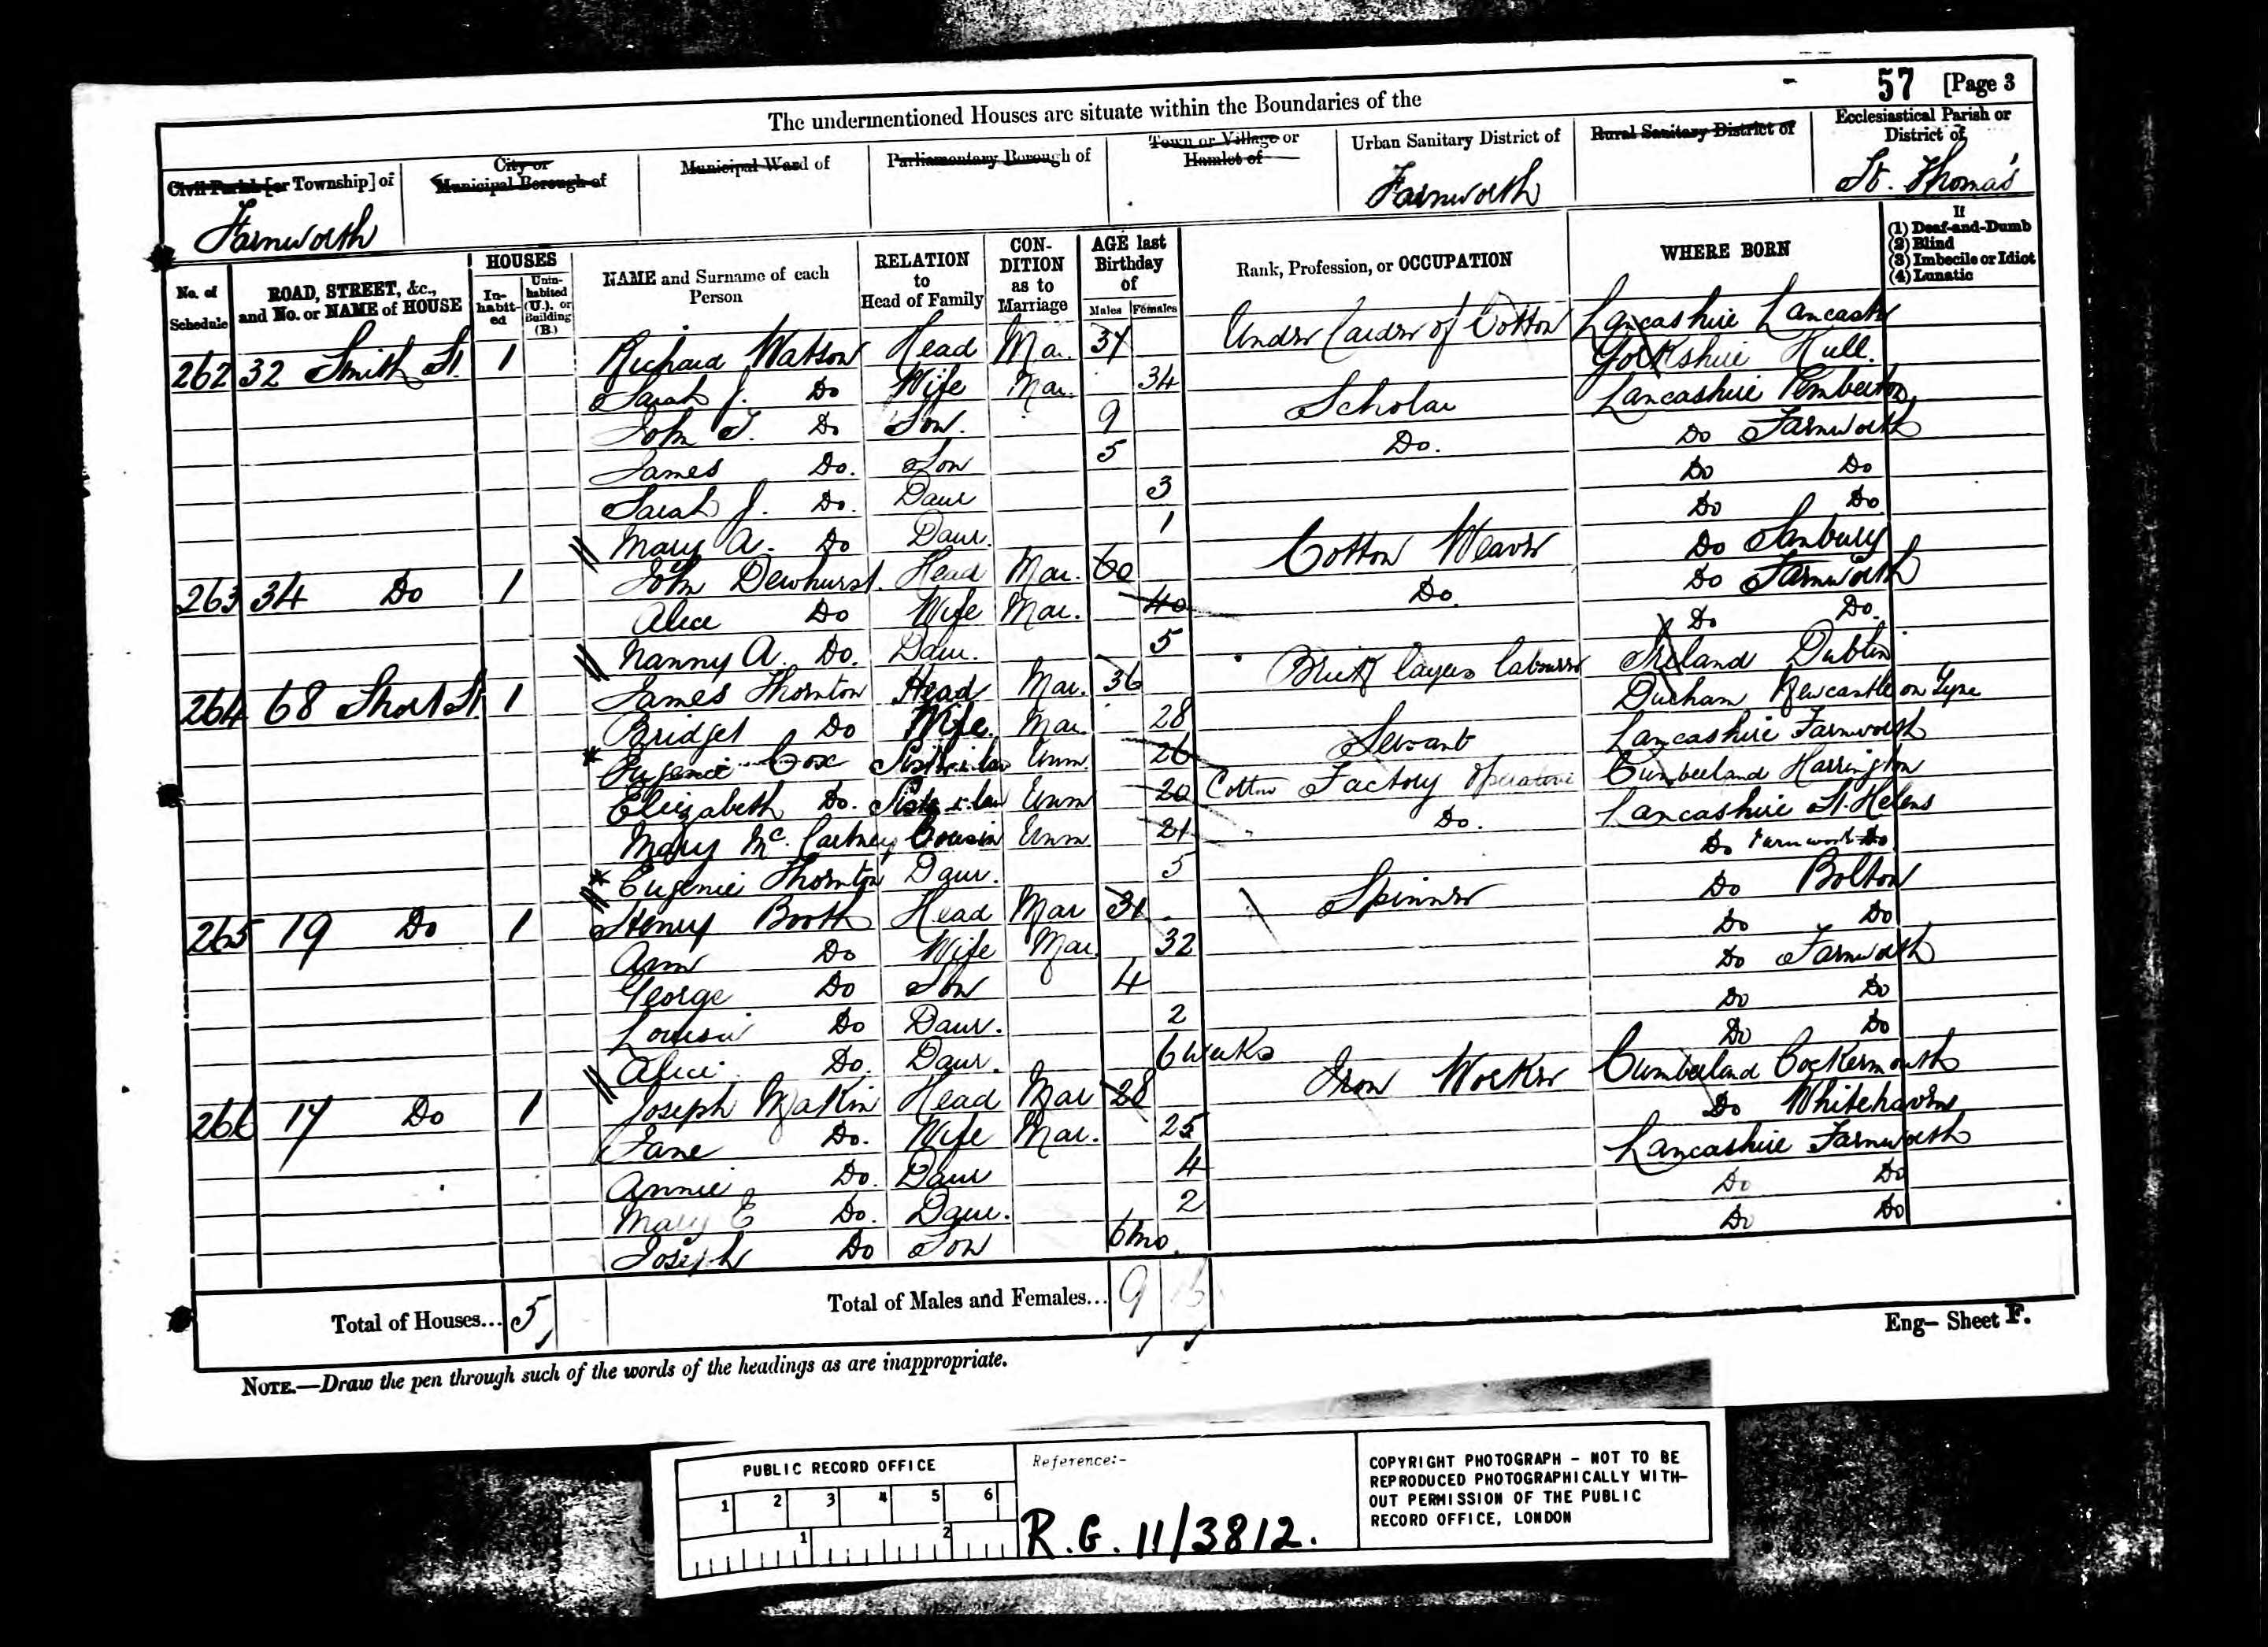 57 [Page 3
The undermentioned Houses are situate within the Boundaries of the
Civil Parish [or Township] of
City or Municipal Borough of
Municipal Ward of
Parliamentary Borough of
Town or Village or Hamlet of
Urban Sanitary District of
Rural Sanitary District of
Ecclesiastical Parish or District of
Farnworth Farnworth St. Thomas'
No. of Schedule
ROAD, STREET, &c., and No. or NAME of HOUSE
HOUSES
In-habit-ed
Unin-habited (U.), or Building (B.)
NAME and Surname of each Person
RELATION to Head of Family
CON-DITION as to Marriage
AGE last Birthday of
Males Females
Rank, Profession, or OCCUPATION
WHERE BORN
If
(1) Deaf-and-Dumb
(2) Blind
(3) Imbecile or Idiot
(4) Lunatic
262 32 Smith St. 1 Richard Watson Head Mar. 37 Under Carder of Cotton Lancashire Lancaster
Sarah J. Do Wife Mar. 34 Yorkshire Hull.
John T. Do Son. 9 Scholar Lancashire Pemberton
James Do. Son 5 Do. Do Farnworth
Sarah J. Do. Daur 3 Do Do
Mary A. Do Daur. 1 Do Do
263 34 Do 1 John Dewhurst. Head Mar. 60 Cotton Weaver Do
Alice Do Wife Mar. 40 Do. Do Farnworth
Nanny A. Do. Daur. 5 Do Do.
264 68 Short St. 1 James Thornton Head Mar. 36 Brick layers labourer Ireland Dublin
Bridget Do Wife. Mar. 28 Durham Newcastle on Tyne
Eugenie Cox Sister i. law Unm. 26 Servant Lancashire Farnworth
Elizabeth Do. Sister i. law Unm 20 Cotton Factory Operative Cumberland Harrington
Mary Mc. Cartney Cousin Unm 21 Do. Lancashire St. Helens
Eugenie Thornton Daur. 5 Do Farnworth
265 19 Do 1 Henry Booth Head Mar 31 Spinner Do Bolton
Ann Do Wife Mar. 32 Do Do
George Do Son 4 Do Farnworth
Louisa Do Daur. 2 Do Do
Alice Do. Daur. 6 weeks Do Do
266 17 Do 1 Joseph Makin Head Mar 28 Iron Worker Cumberland Cockermouth
Jane Do. Wife Mar. 25 Do Whitehaven
Annie Do. Daur 4 Lancashire Farnworth
Mary E Do. Daur. 2 Do Do
Joseph Do Son 6 mo. Do Do
Total of Houses... 5 Total of Males and Females... 9
Eng– Sheet F.
NOTE.—Draw the pen through such of the words of the headings as are inappropriate.
PUBLIC RECORD OFFICE
1 2 3 4 5 6
1 2
Reference:-
R.G. 11/3812.
COPYRIGHT PHOTOGRAPH – NOT TO BE
REPRODUCED PHOTOGRAPHICALLY WITH–
OUT PERMISSION OF THE PUBLIC
RECORD OFFICE, LONDON